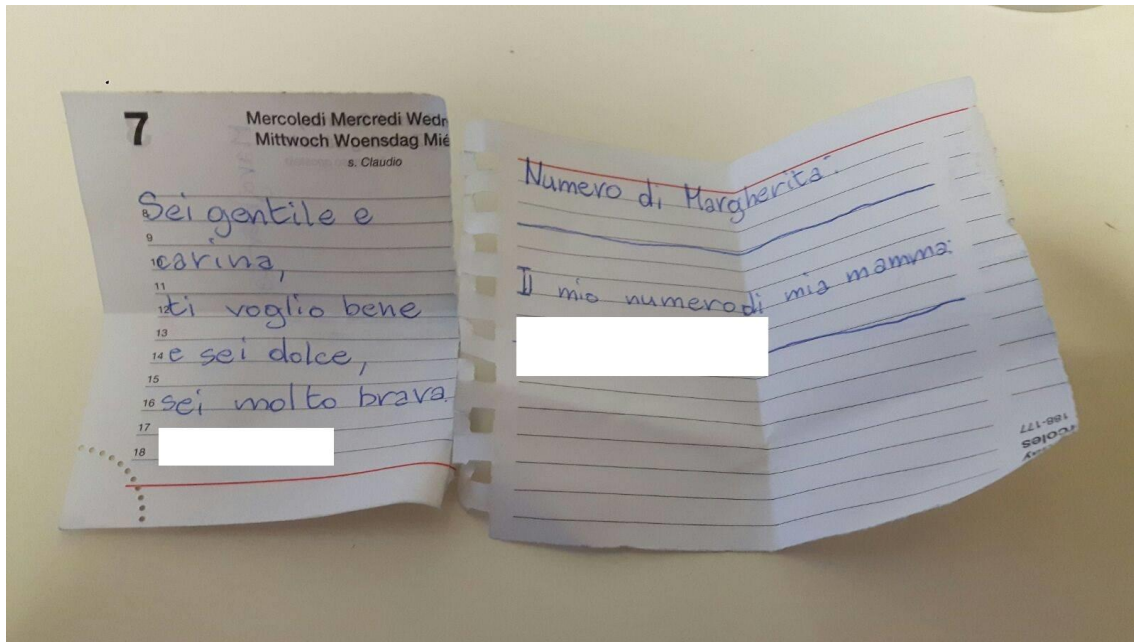 7
Mercoledì Mercredi Wedn
Mittwoch Woensdag Mié
s. Claudio
8 Sei gentile e
9
10 carina,
11
12 ti voglio bene
13
14 e sei dolce,
15
16 sei molto brava.
17
18
Numero di Margherita:
Il mio numero di mia mamma:
188-177